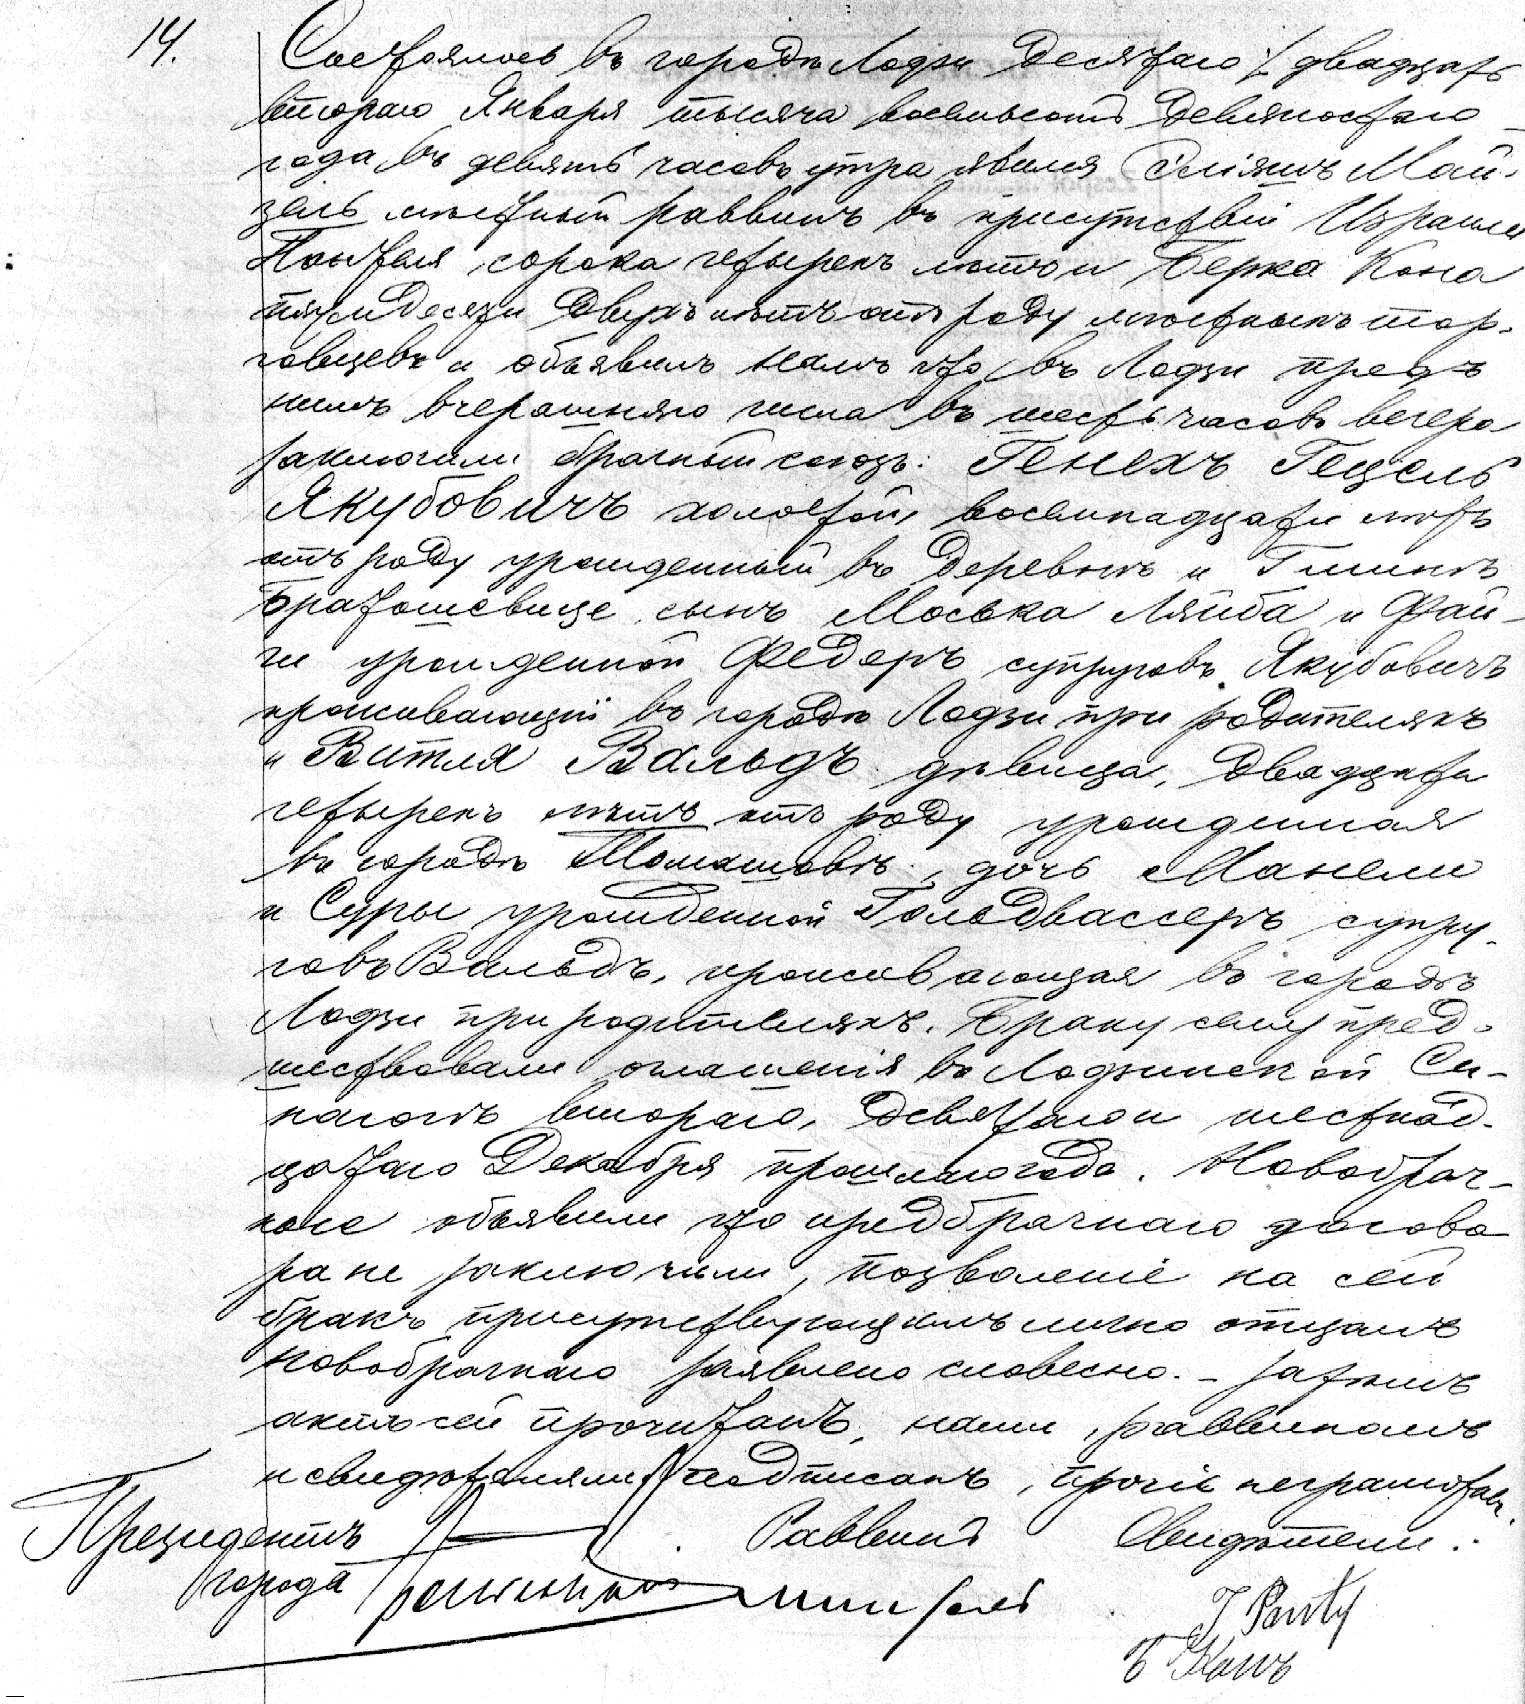 14.
Состоялось въ городѣ Лодзи Десятаго / двадцать
втораго Января тысяча восемьсотъ Девяностаго
года въ девять часовъ утра явился Еліяшъ Май-
зель мѣстный раввинъ въ присутствіи Израиля
Понтеля, сорока четырехъ лѣтъ и Берка Кона
пятидесяти Двухъ лѣтъ отъ роду мѣстныхъ тор-
говцевъ и объявилъ намъ что въ Лодзи предъ
нимъ вчерашняго числа въ шесть часовъ вечера
заключили брачный союзъ: Генехъ Гецель
Якубовичъ холостой, восемнадцати лѣтъ
отъ роду урожденный въ Деревнѣ и Гминѣ
Братошевице, сынъ Моська Ляйба и Фай-
ги урожденной Федеръ супруговъ Якубовичъ
проживающій въ городѣ Лодзи при родителяхъ
и Витля Вальдъ дѣвица, Двадцати
четырехъ лѣтъ отъ роду урожденная
въ городѣ Томашовѣ, дочь Манели
и Суры урожденной Гольдвассеръ супру-
говъ Вальдъ, проживающая въ городѣ
Лодзи при родителяхъ. Браку сему пред-
шествовали оглашенія въ Лодзинской Си-
нагогѣ втораго, Девятаго и шестнад-
цатаго Декабря прошлаго года. Новобрач-
ные объявили что предбрачнаго догово
ра не заключили, позволеніе на сей
бракъ присутствующимъ лично отцомъ
новобрачнаго заявлено словесно. - Затѣмъ
актъ сей прочитанъ, нами, раввиномъ
и свидѣтелями подписанъ, прочіе неграмотны.
Президентъ Раввинъ Свидѣтели:
города
J Ponty
Б Конъ